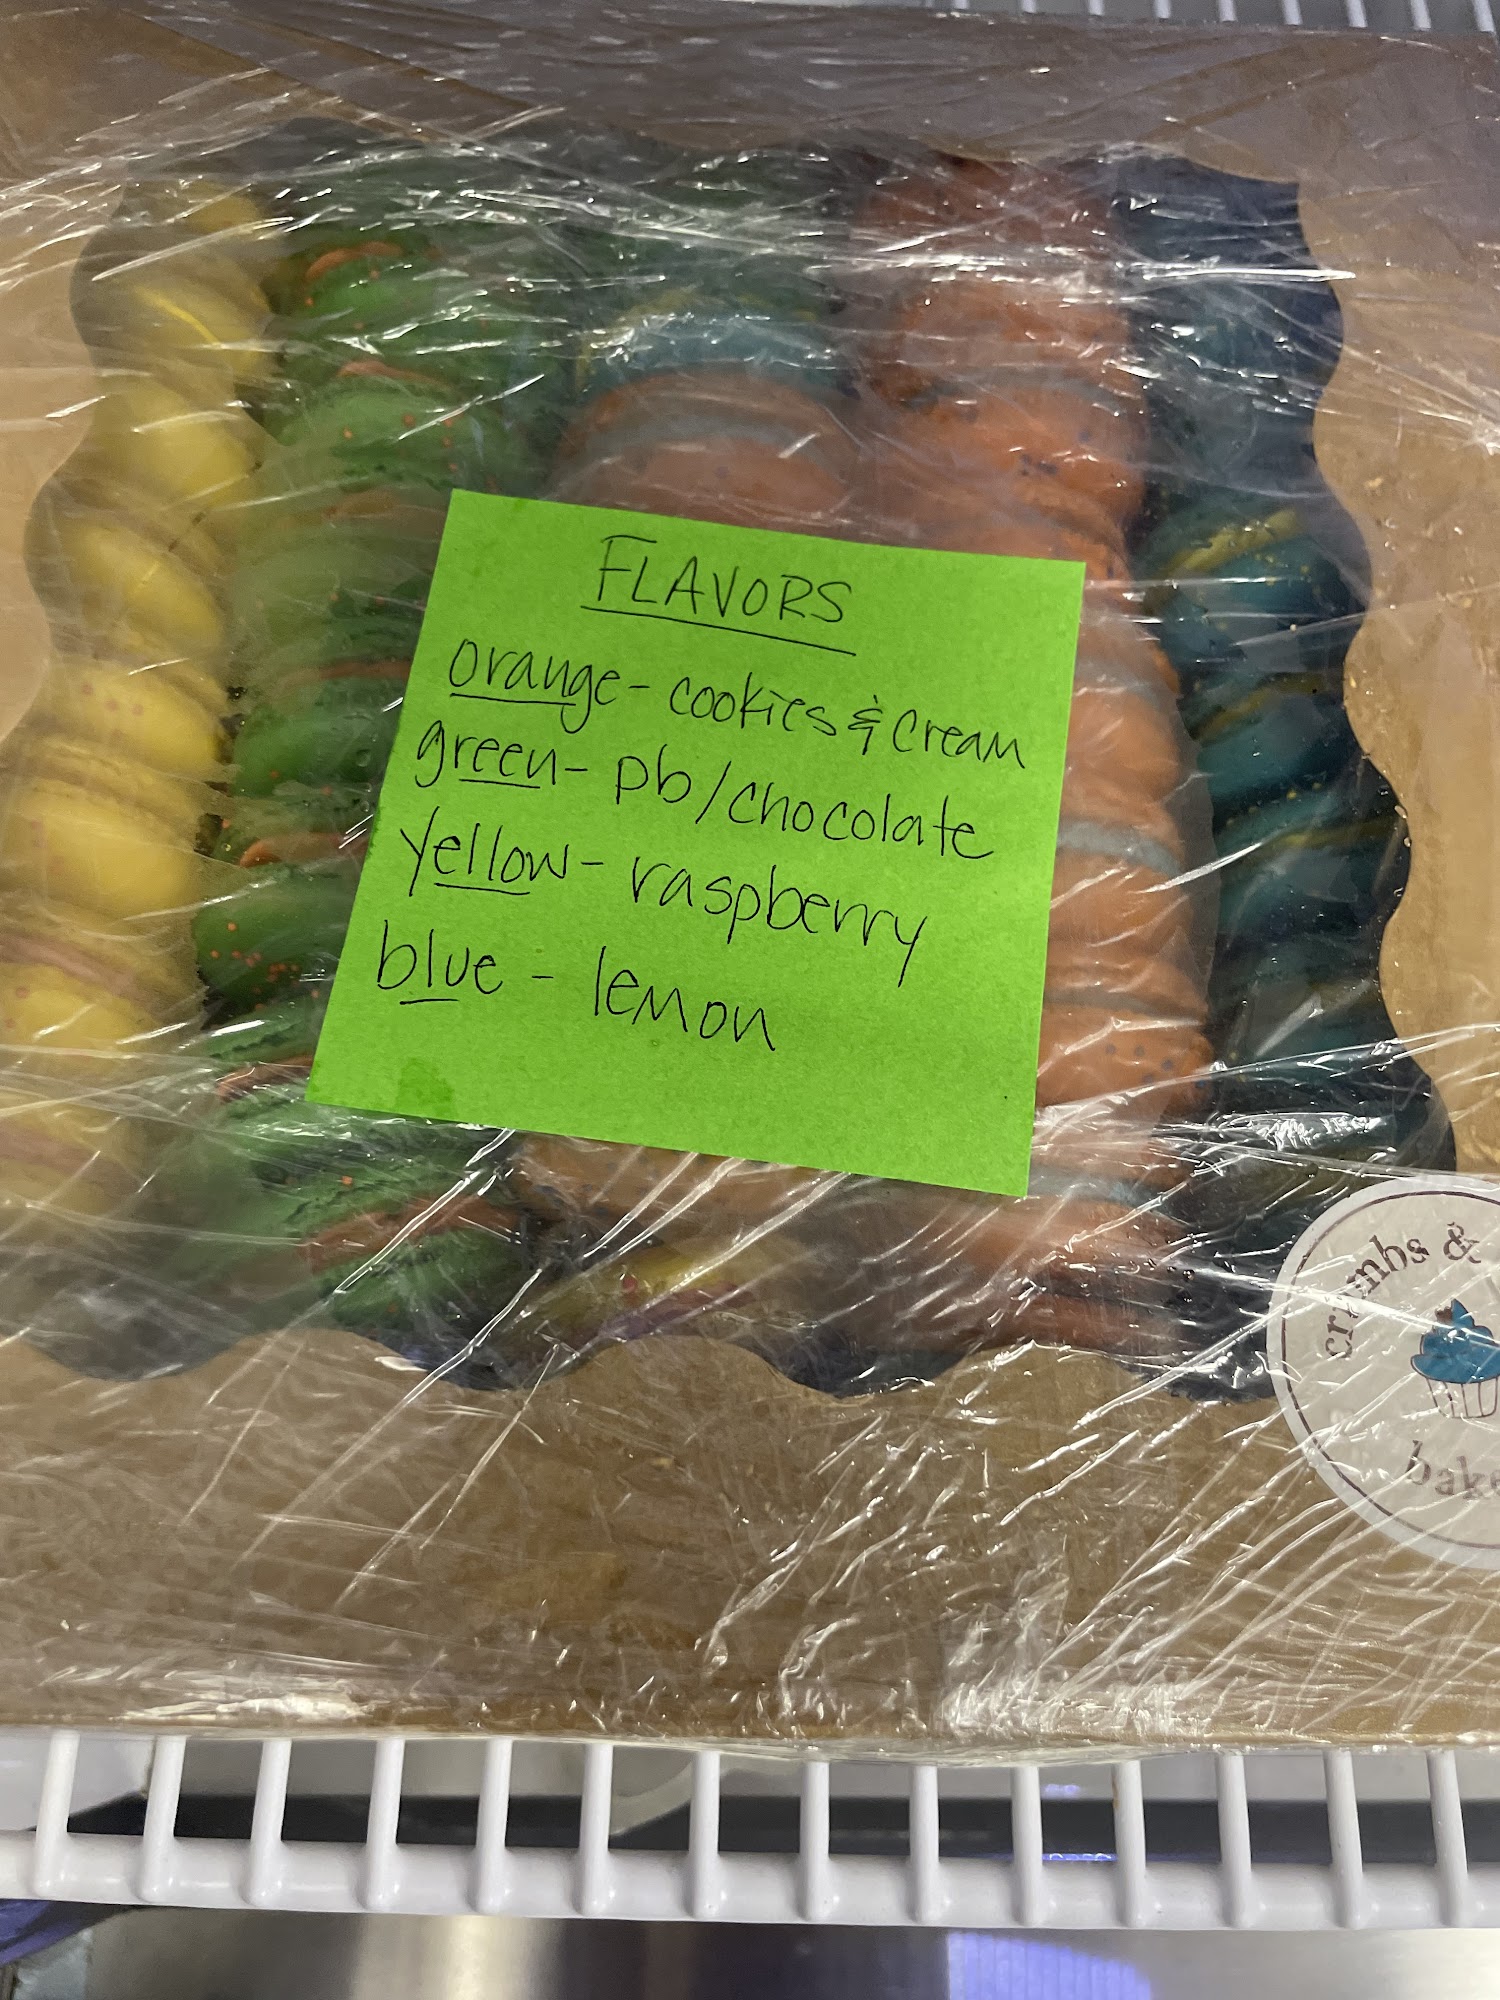 FLAVORS
orange - cookies & cream
green - pb/chocolate
yellow - raspberry
blue - lemon
crumbs &